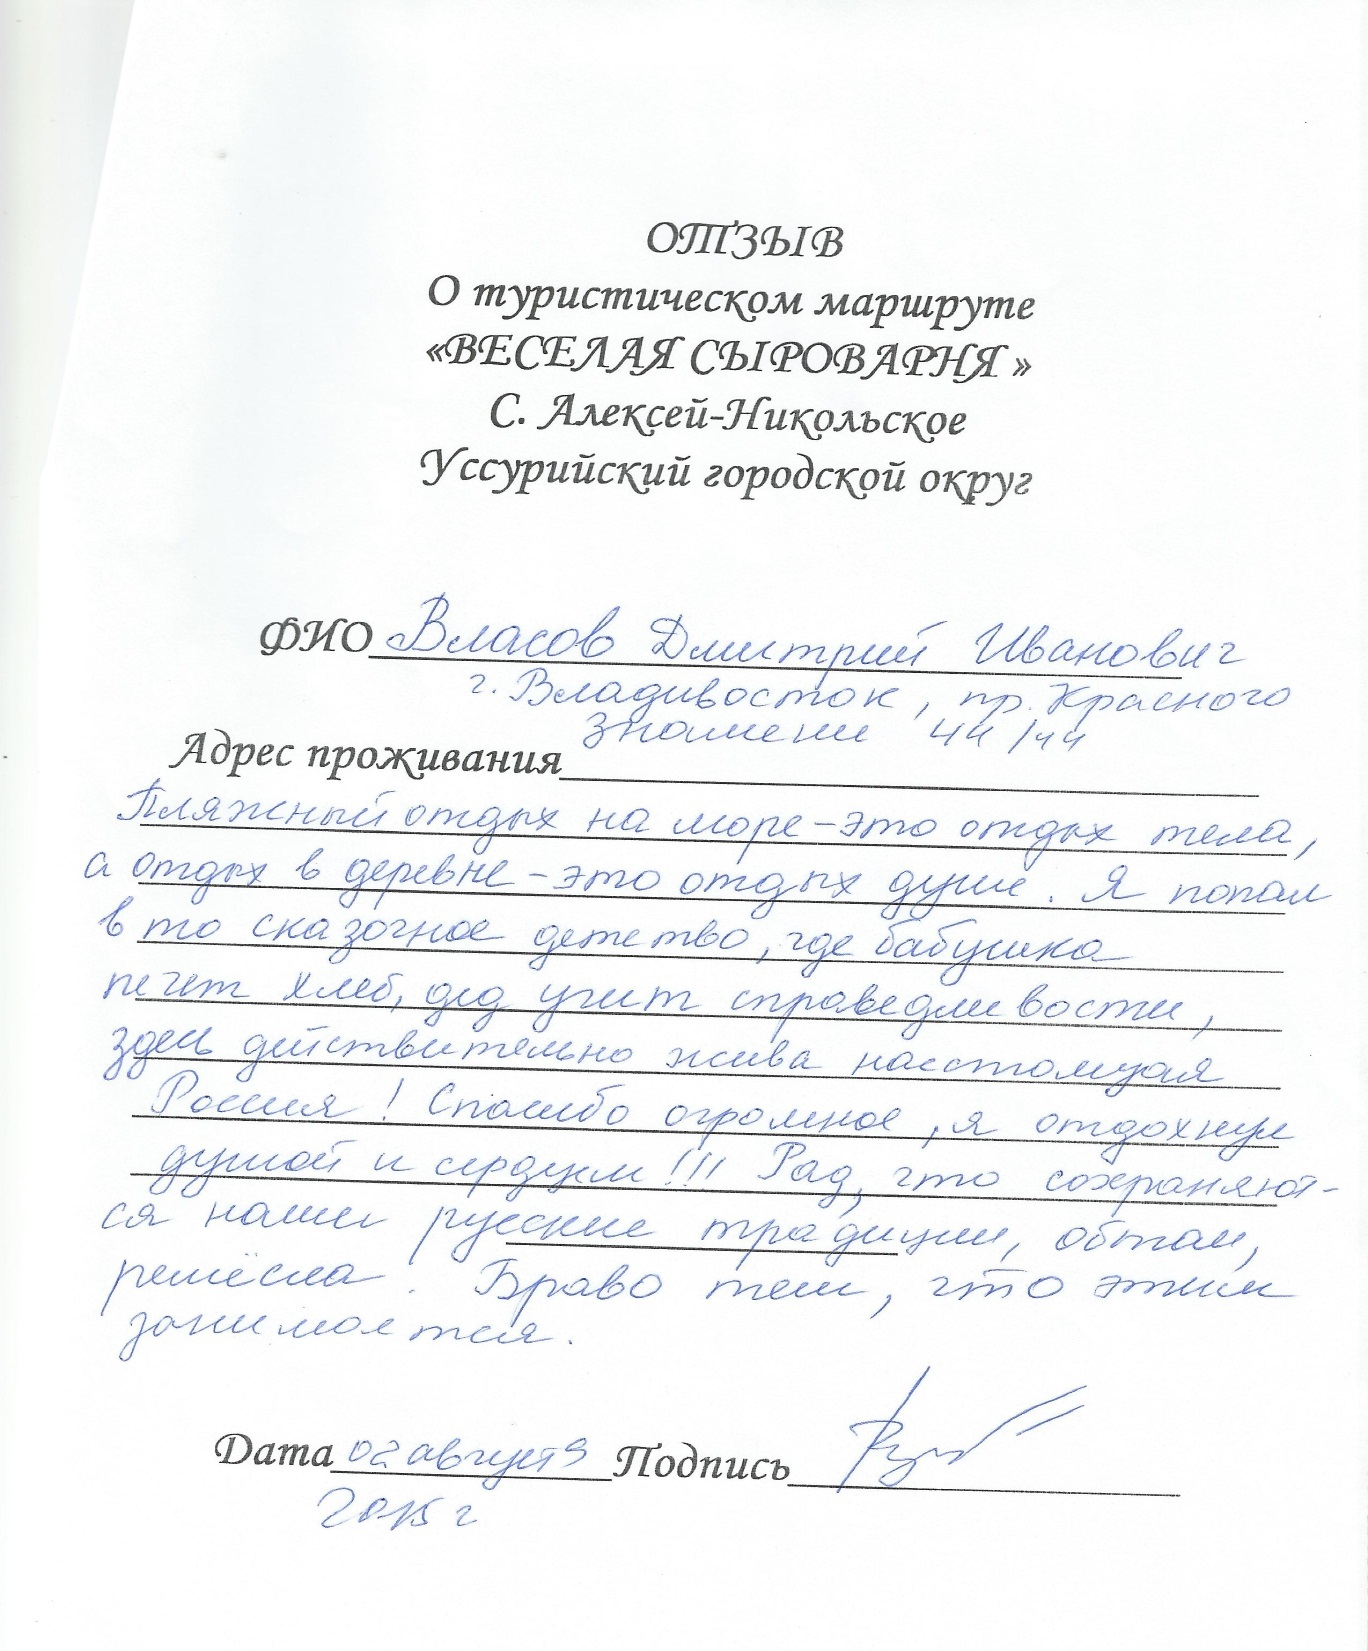 ОТЗЫВ
О туристическом маршруте
«ВЕСЕЛАЯ СЫРОВАРНЯ»
С. Алексей-Никольское
Уссурийский городской округ
ФИО Власов Дмитрий Иванович
г. Владивосток, пр. Красного
знамени 44/44
Адрес проживания
Пляжный отдых на море - это отдых тела,
а отдых в деревне - это отдых души. Я попал
в то сказочное детство, где бабушка
печет хлеб, дед учит справедливости,
здесь действительно жива настоящая
Россия! Спасибо огромное, я отдохнул
душой и сердцем!!! Рад, что сохраняют-
ся наши русские традиции, обычаи,
ремёсла. Браво тем, что этим
занимается.
Дата 02 августа Подпись
2015 г